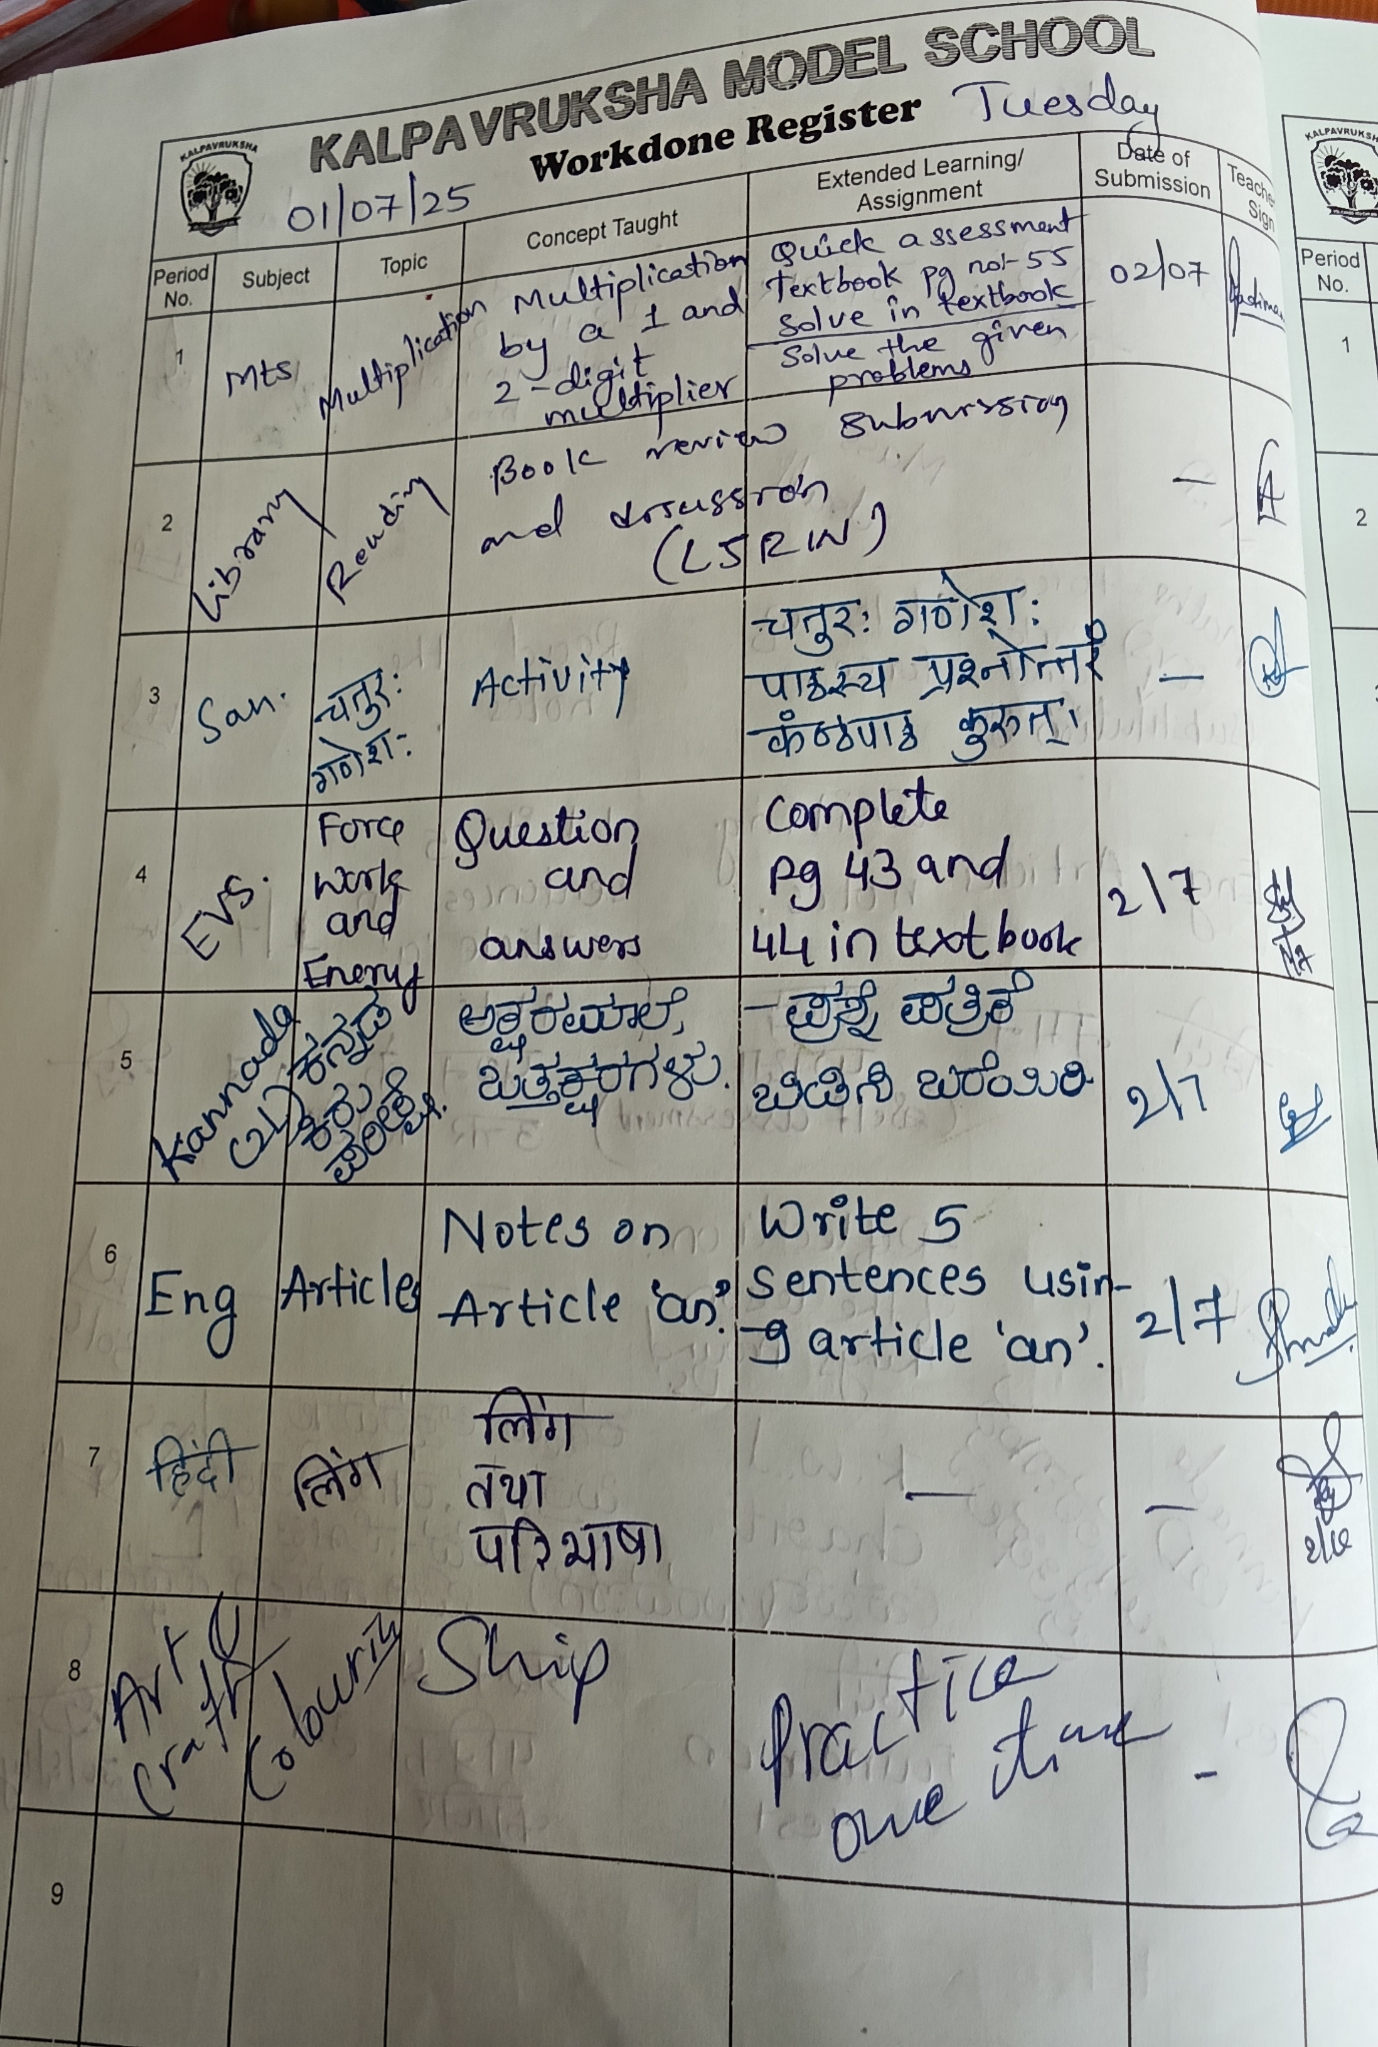 KALPAVRUKSHA MODEL SCHOOL
Workdone Register Tuesday
KALPAVRUKSHA
01/07/25
Period No.
Subject
Topic
Concept Taught
Extended Learning/ Assignment
Date of Submission
Teacher Sign
1
Mts
Multiplication
Multiplication
by a 1 and
2-digit
multiplier
Quick assessment
Textbook pg no:-55
Solve in textbook
Solve the given
problems
02/07
2
Library
Reading
Book review submission
and discussion
(LSRW)
-
3
San.
चतुरः
गणेशः
Activity
चतुरः गणेशः
पाठस्य प्रश्नोत्तरं
कंठपाठ कुरुत।
-
4
EVS.
Force
work
and
Energy
Question
and
answers
Complete
pg 43 and
44 in textbook
2/7
5
Kannada
(2L)
ಕನ್ನಡ
ಕಿರು
ಪರೀಕ್ಷೆ.
ಅಕ್ಷರಮಾಲೆ,
ಒತ್ತಕ್ಷರಗಳು.
- ಪ್ರಶ್ನೆ ಪತ್ರಿಕೆ
ಬಿಡಿಸಿ ಬರೆಯಿರಿ
2/7
6
Eng
Articles
Notes on
Article 'an'.
Write 5
sentences usin-
-g article 'an'.
2/7
7
हिंदी
लिंग
लिंग
तथा
परिभाषा
-
-
8
Art &
Craft
Colouring
Ship
Practice
one time
-
9
KALPAVRUKSH
Period No.
1
2